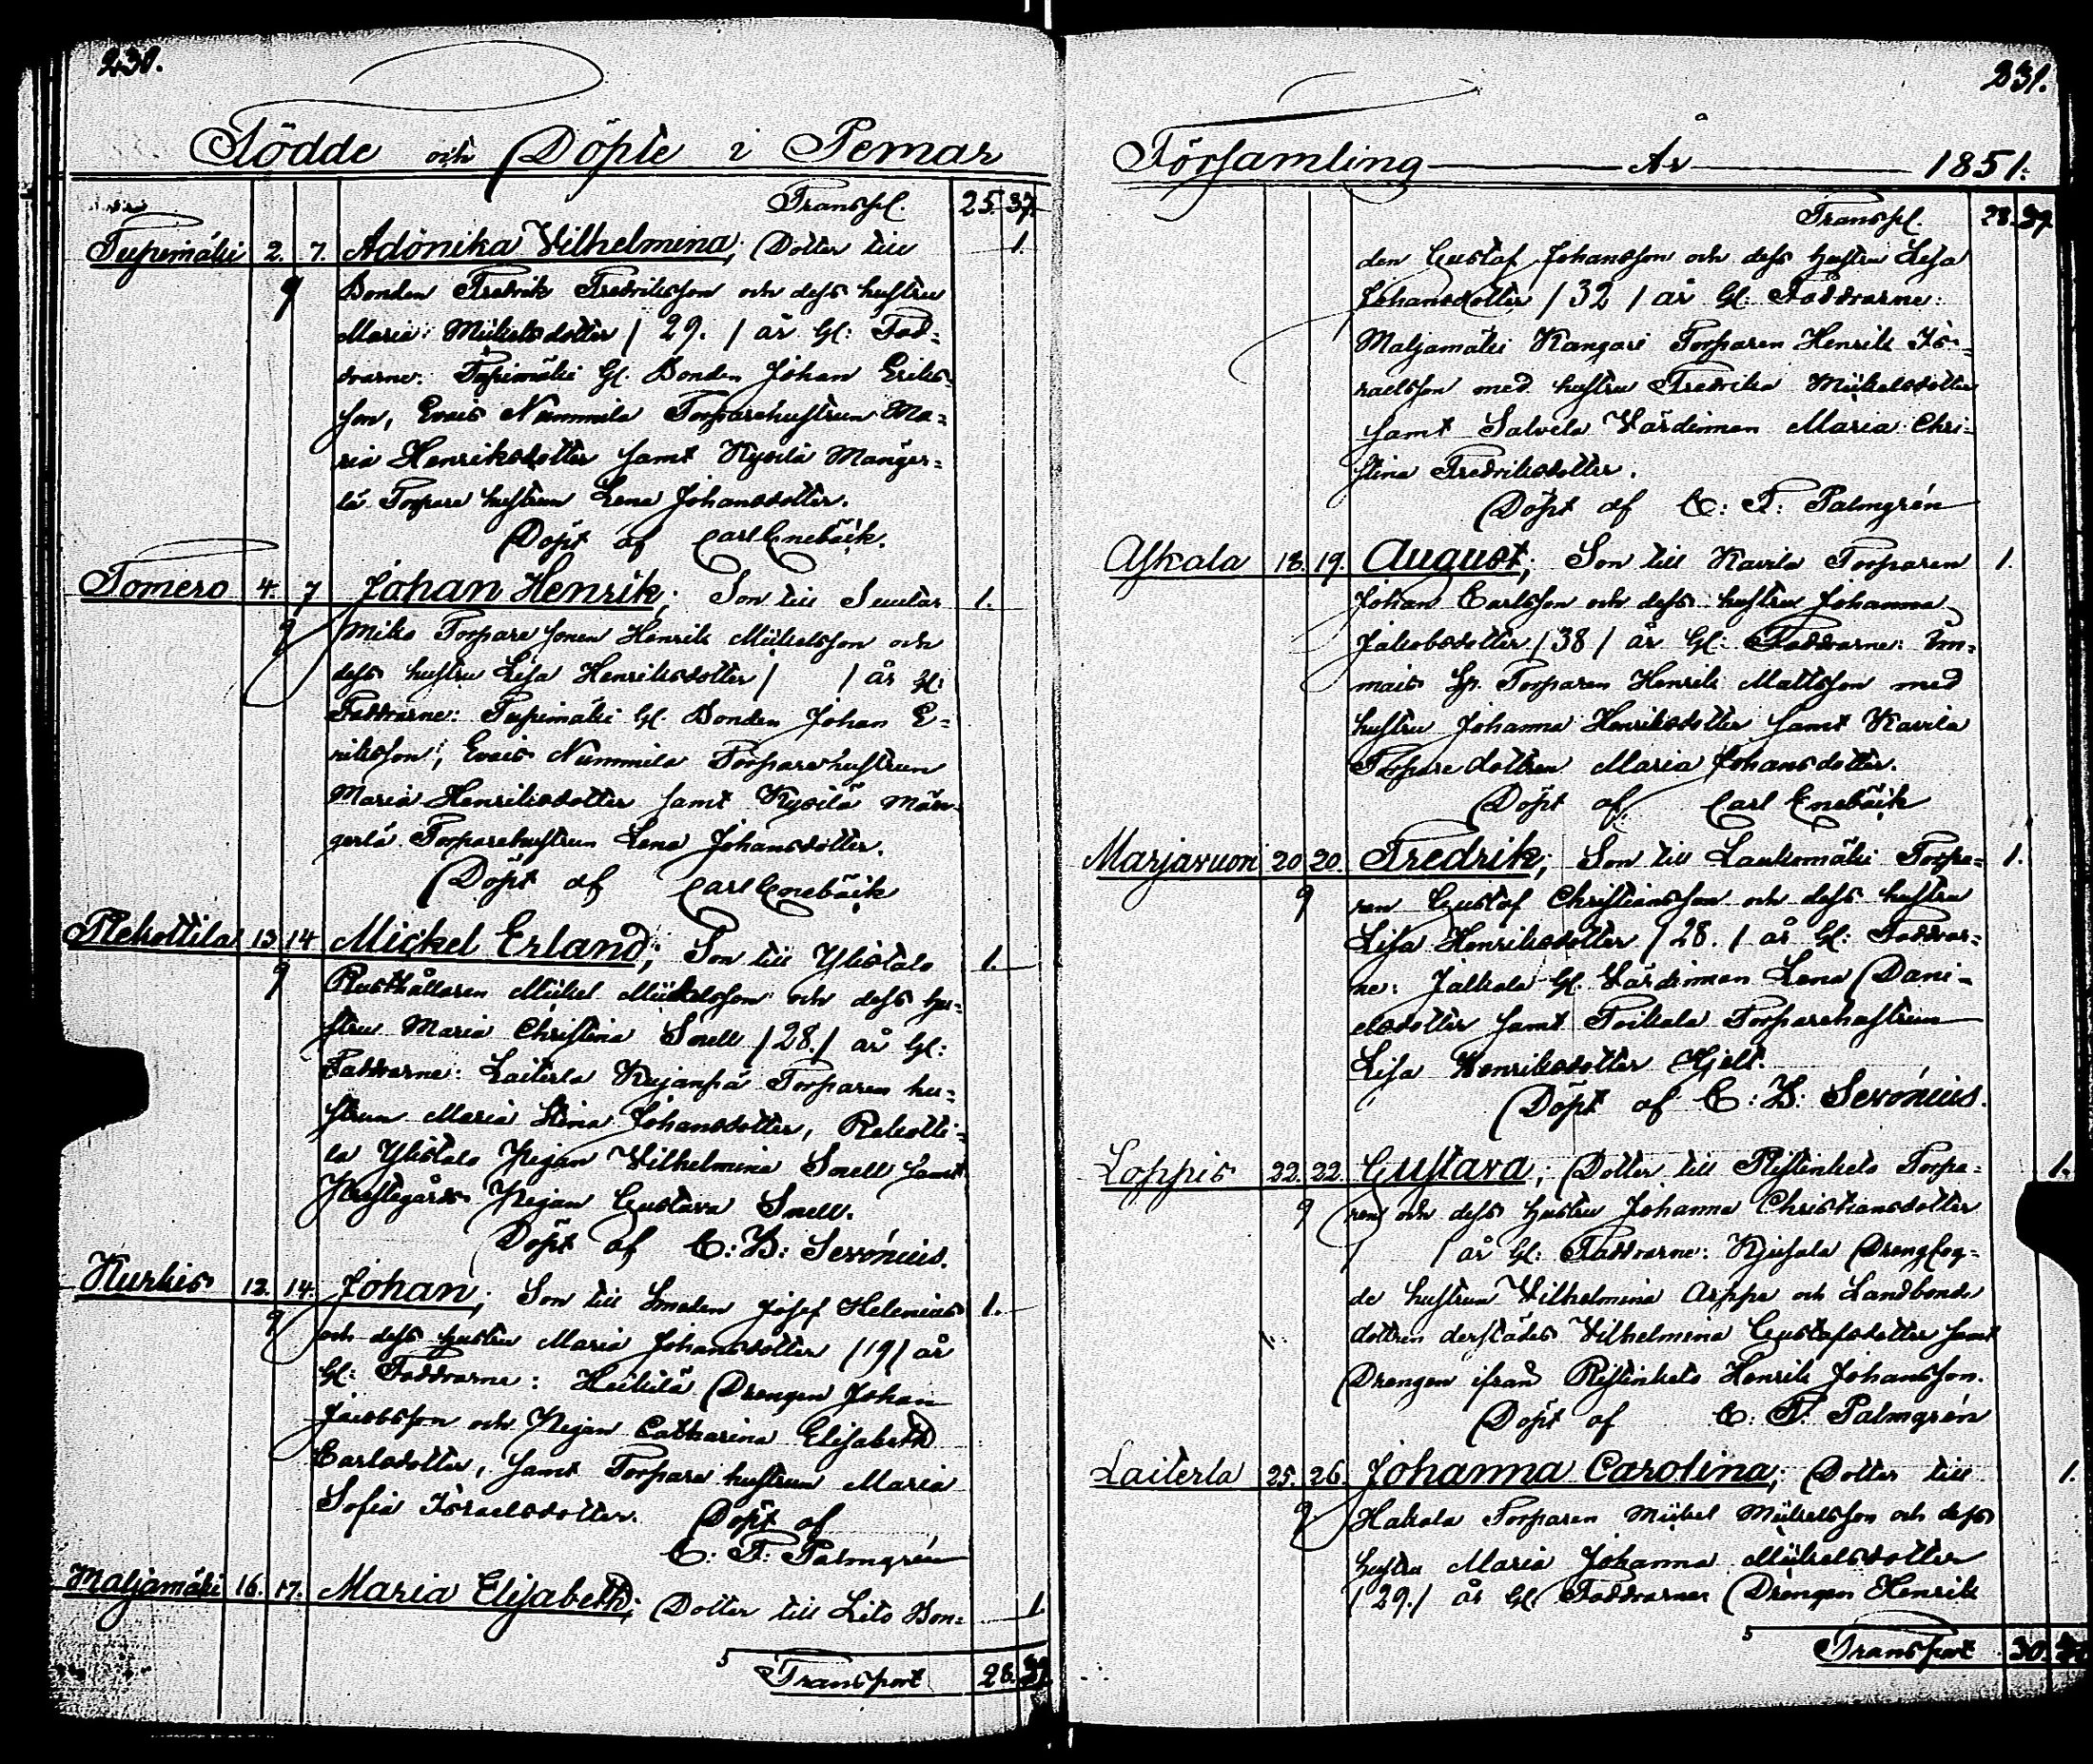 230.
Födde och Döpte i Pemar
Transpt. 25. 37.
Tupimäki 2. 7. Adönika Wilhelmina; Dotter till 1.
9 Bonden Fredrik Fredriksson och dess hustru
Maria Mickelsdotter / 29. / år gl: Fad-
drarne: Tupimäki gl. Bonden Johan Eriks-
son, Evais Nummila Torparehustrun Ma-
ria Henriksdotter samt Kysilä Mänger-
lä Torpare hustrun Lena Johansdotter.
Döpt af Carl Enebäck.
Tomero 4. 7 Johan Henrik; Son till Suutar 1.
9 miko Torpare sonen Henrik Mickelsson och
dess hustru Lisa Henriksdotter / / år gl:
Faddrarne: Tupimäki gl. Bonden Johan E-
riksson, Evais Nummila Torparehustrun
Maria Henriksdotter samt Kysilä Män-
gerlä Torparehustrun Lena Johansdotter.
Döpt af Carl Enebäck
Rekottila 13 14 Mickel Erland; Son till Ylistalo 1.
9 Rusthållaren Mickel Mickelsson och dess hu-
stru Maria Christina Snell / 28. / år gl:
Faddrarne: Laiterla Kujanpä Torparen hu-
strun Maria Stina Johansdotter, Rekotti-
la Ylistalo Pigan Wilhelmina Snell samt
Prestegårds Pigan Gustava Snell.
Döpt af C: B: Serónius.
Kurkis 12. 14. Johan; Son till Smeden Josef Helenius 1.
9 och dess hustru Maria Johansdotter / 19 / år
gl: Faddrarne: Heikilä Drengen Johan
Jacobsson och Pigan Catharina Elisabeth
Carlsdotter, samt Torpare hustrun Maria
Sofia Israelsdotter. Döpt af
C: F: Palmgrén
Maljamäki 16. 17. Maria Elisabeth; Dotter till Lito Bon- 1.
Transport 28. 39.
231.
Församling År 1851.
Transpt. 28. 39
den Gustaf Johansson och dess hustru Lisa
Johansdotter / 32 / år gl: Faddrarne:
Maljamäki Kangari Torparen Henrik Is-
raelsson med hustru Fredrika Mickelsdotter
samt Salvela Värdinnan Maria Chri-
stina Fredriksdotter.
Döpt af C: F: Palmgrén
Askala 18. 19. August; Son till Kavila Torparen 1.
Johan Carlsson och dess hustru Johanna
Jakobsdotter / 38 / år gl: Faddrarne:
Torparen Henrik Mattsson med
hustru Johanna Henriksdotter samt Kavila
Torpare dottren Maria Johansdotter.
Döpt af Carl Enebäck
Marjavuori 20 20. Fredrik; Son till Laukomäki Torpa- 1.
9 ren Gustaf Christiansson och dess hustru
Lisa Henriksdotter / 28. / år gl: Faddrar-
ne: Jalkala gl. Värdinnan Lena Dani-
elsdotter samt Toikala Torparehustrun
Lisa Henriksdotter Hjelt.
Döpt af C: B: Serónius.
Loppis 22. 22. Gustava; Dotter till Ristinketo Torpa- 1.
9 ren och dess hustru Johanna Christiansdotter
/ / år gl: Faddrarne: Kjusala Drengfog-
de hustrun Wilhelmina Arppe och Landbonde
dottren derstädes Wilhelmina Gustafsdotter samt
Drengen ifrån Ristinketo Henrik Johansson.
Döpt af C: F: Palmgrén
Laiterla 25. 26. Johanna Carolina; Dotter till 1.
9 Hakala Torparen Mickel Mickelsson och dess
hustru Maria Johanna Mickelsdotter
/ 29. / år gl. Faddrarne Drengen Henrik
Transport 30.